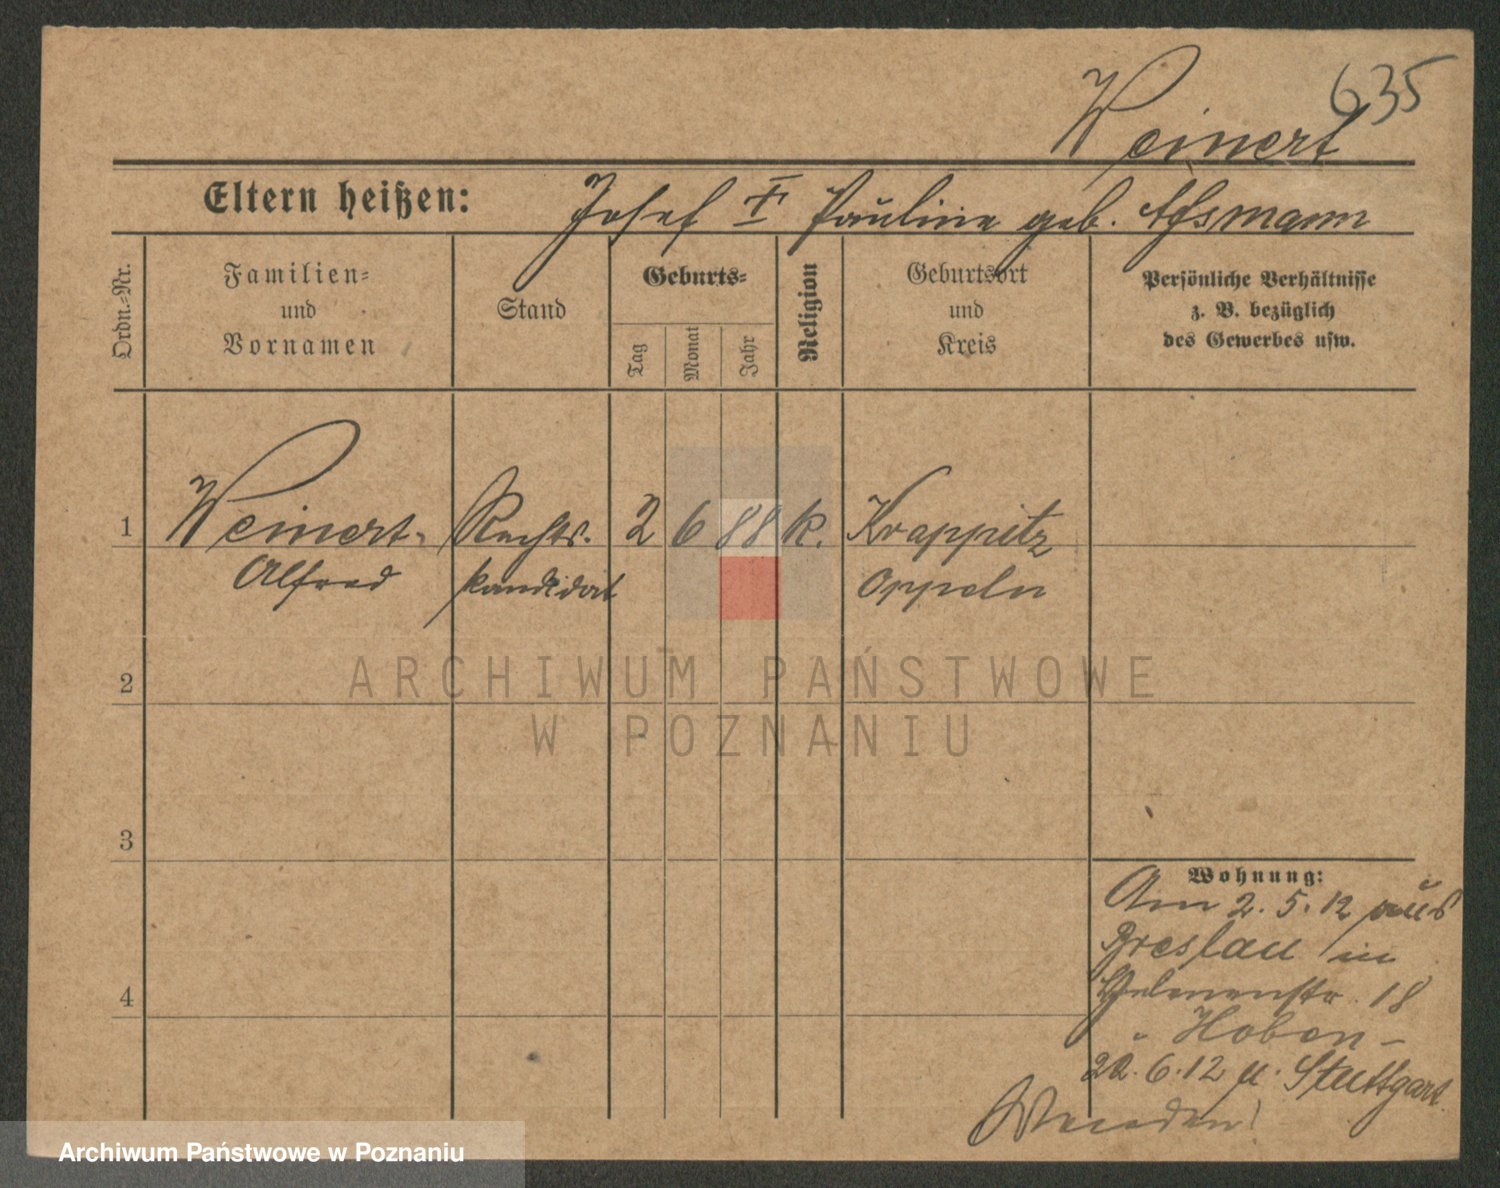 635
Weinert
Eltern heißen: Josef † Pauline geb. Assmann
Ordn.-Nr.
Familien-
und
Vornamen
Stand
Geburts-
Tag
Monat
Jahr
Religion
Geburtsort
und
Kreis
Persönliche Verhältnisse
z. B. bezüglich
des Gewerbes usw.
1 Weinert- Rechts- 2 6 88 k. Krappitz
Alfred kandidat Oppeln
2
3
4
Wohnung:
Am 2. 5. 12 aus
Breslau in
Helenenstr. 18
" Hoben-
22. 6. 12 n. Stuttgart.
ARCHIWUM PAŃSTWOWE
W POZNANIU
Archiwum Państwowe w Poznaniu